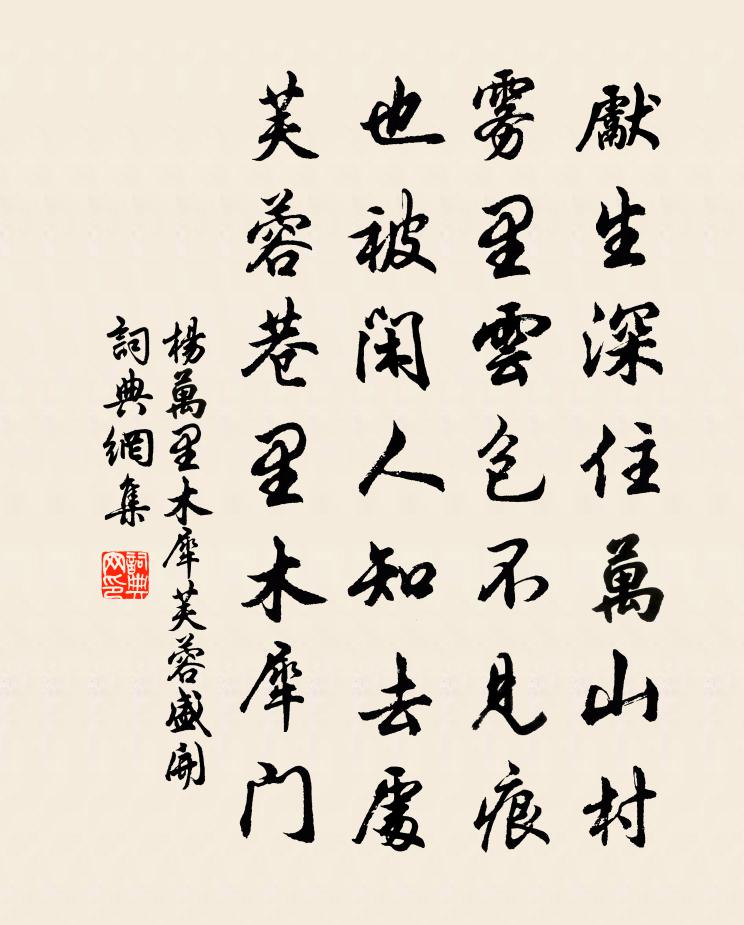 獻生深住萬山村
雾里雲包不見痕
也被閑人知去處
芙蓉巷里木犀門
楊萬里木犀芙蓉盛開
詞典網集
詞典网印